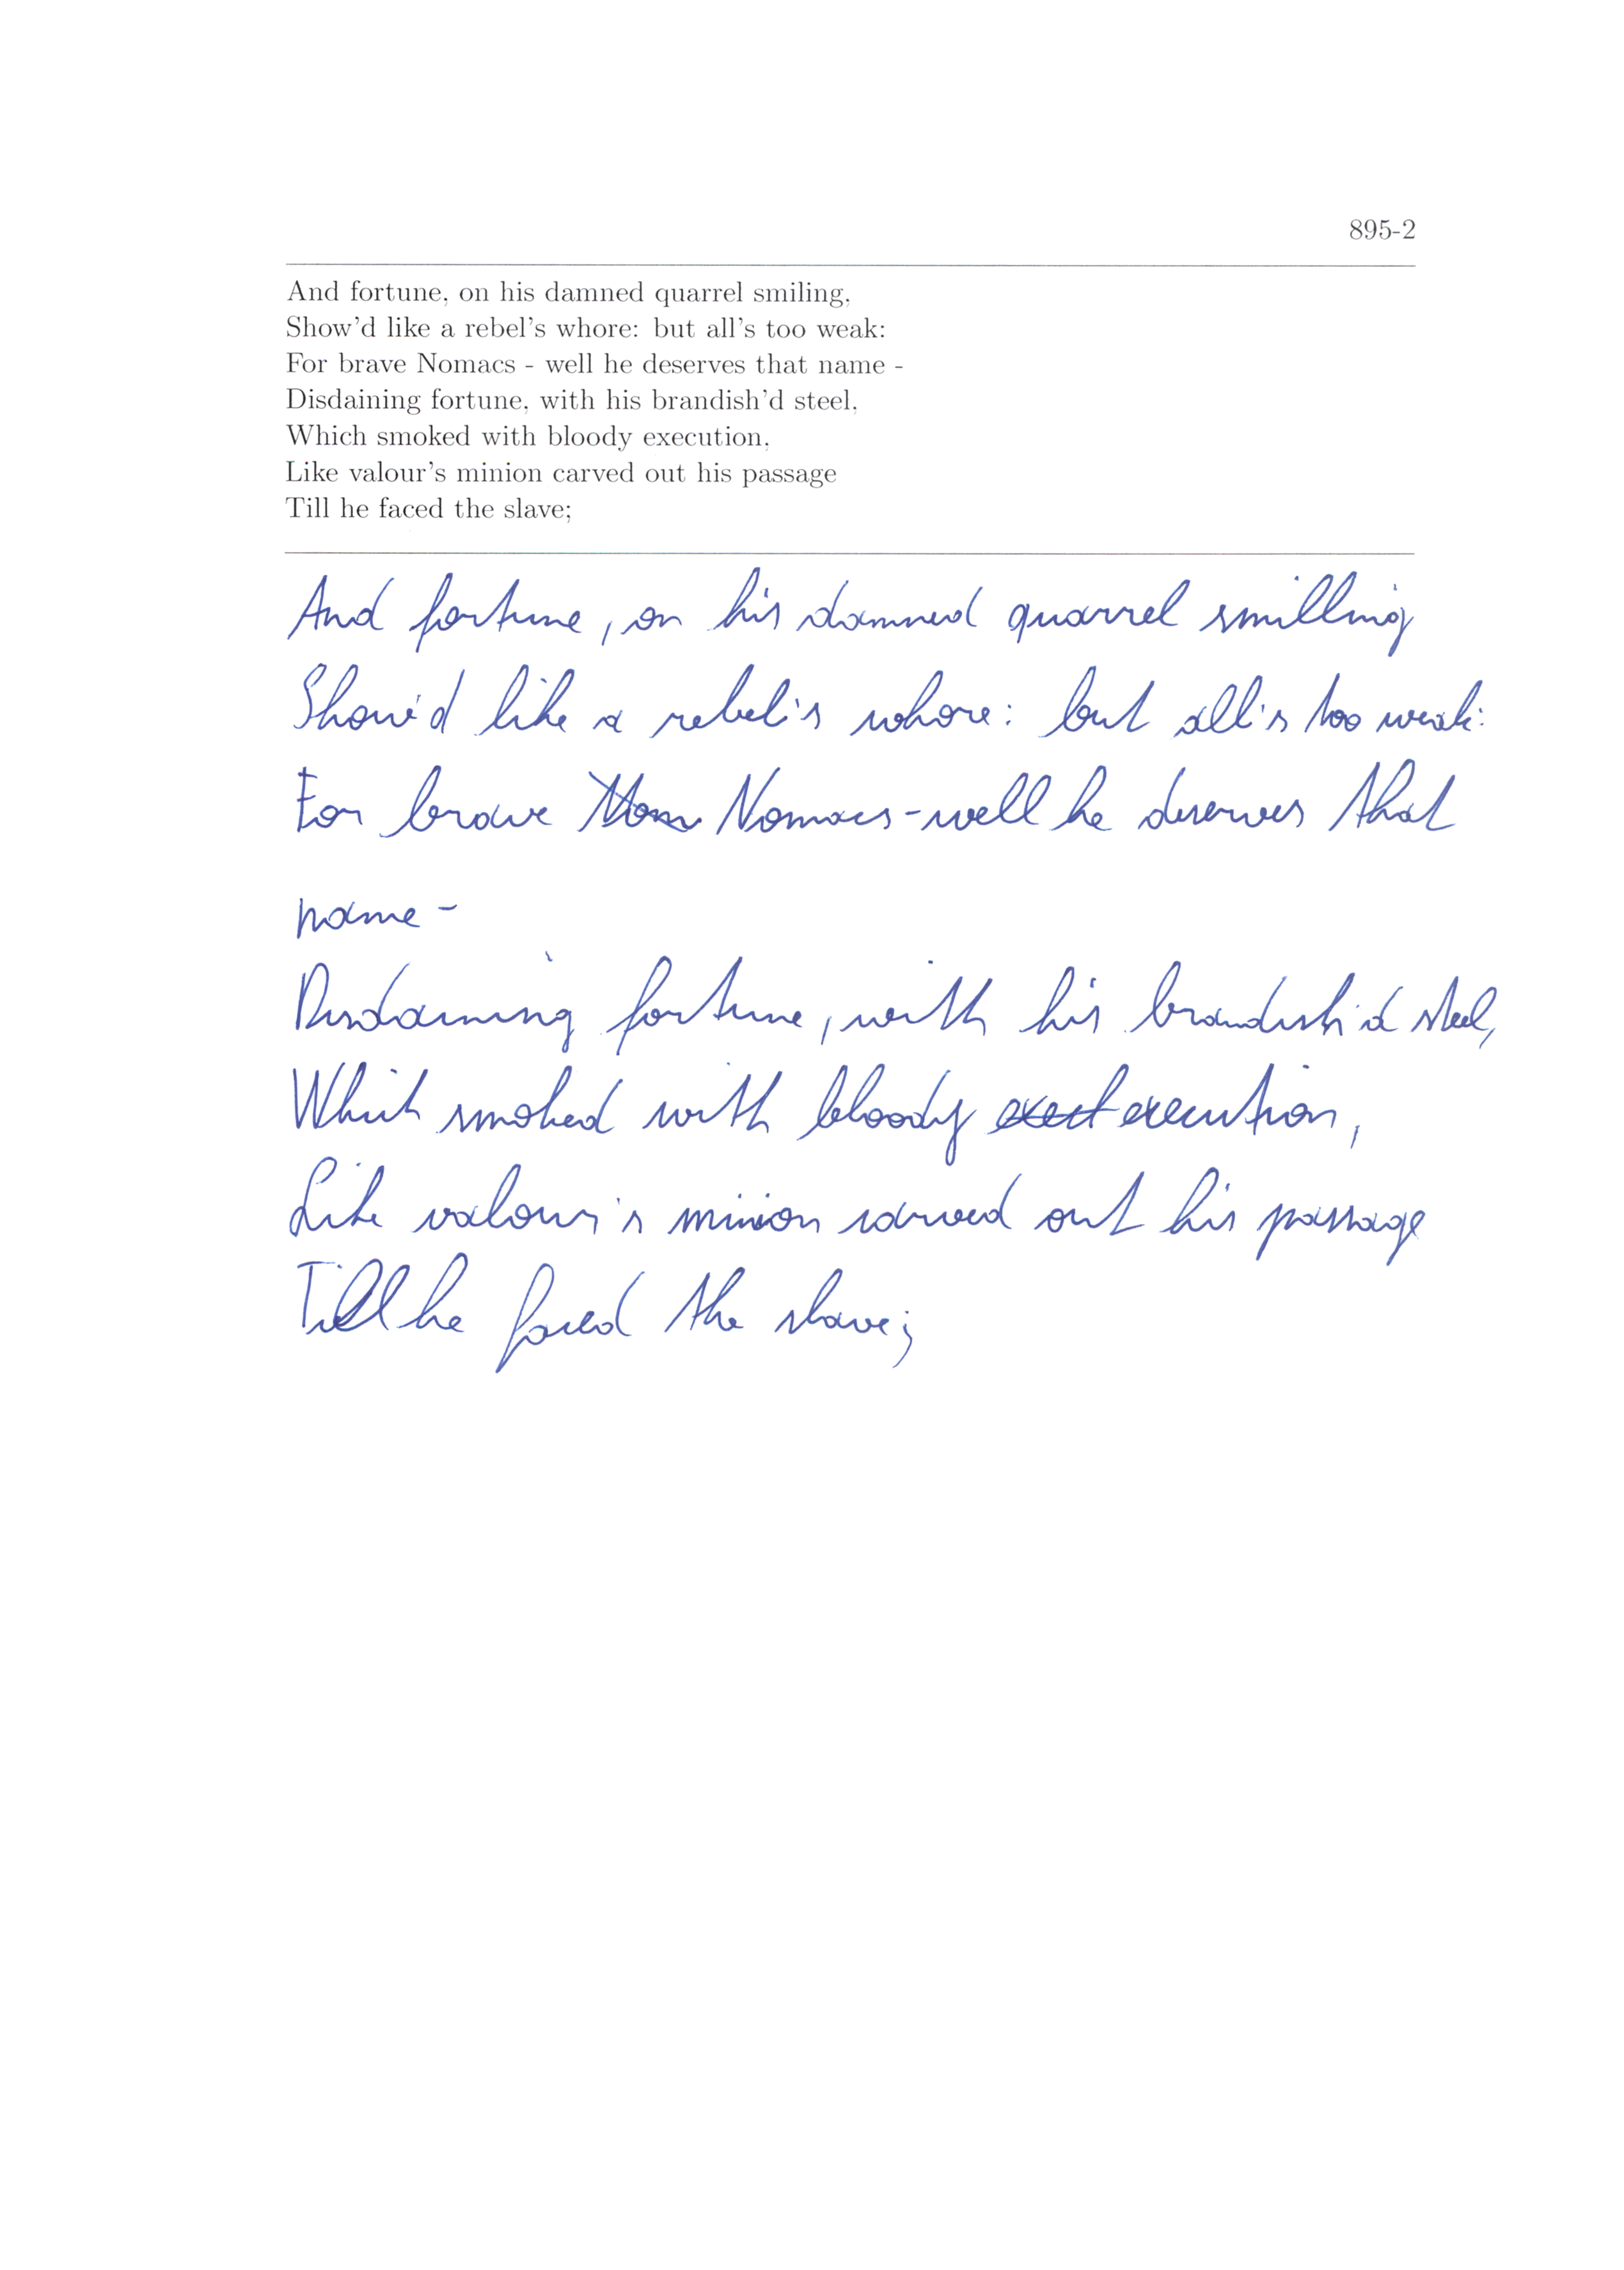 895-2
And fortune, on his damned quarrel smiling,
Show'd like a rebel's whore: but all's too weak:
For brave Nomacs - well he deserves that name -
Disdaining fortune, with his brandish'd steel,
Which smoked with bloody execution,
Like valour's minion carved out his passage
Till he faced the slave;
And fortune, on his damned quarrel smilling
Show'd like a rebel's whore: but all's too weak:
For brave Nomacs - well he deserves that
name -
Disdaining fortune, with his brandish'd steel,
Which smoked with bloody execution,
Like valour's minion carved out his passage
Till he faced the slave;